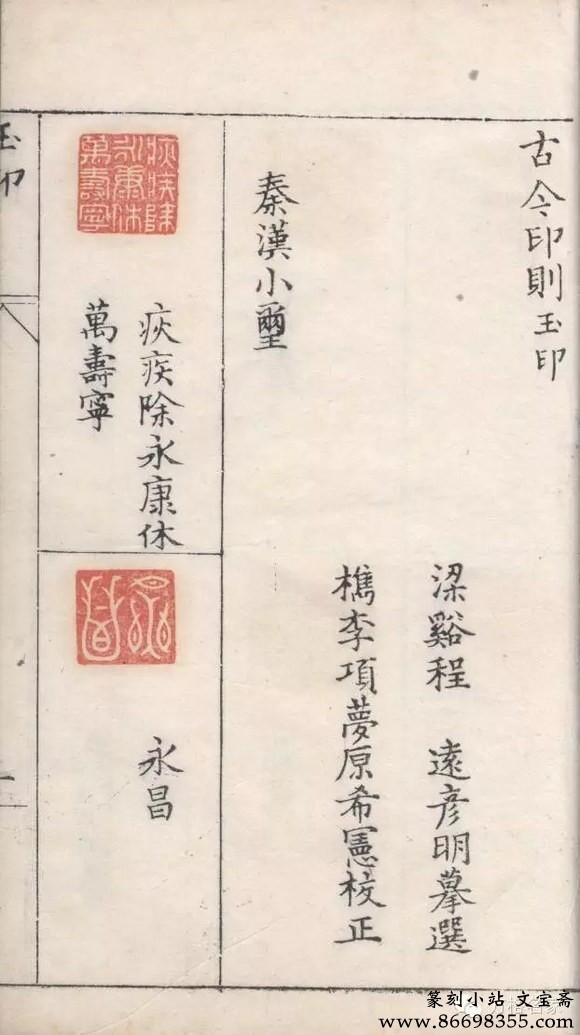 古今印則玉印
梁谿程　遠彦明摹選
檇李項夢原希憲校正
秦漢小璽
疢疾除永康休萬壽寧
疢疾除永康休
萬壽寧
永昌
永昌
玉印
篆刻小站 文宝斋
www.86698355.com